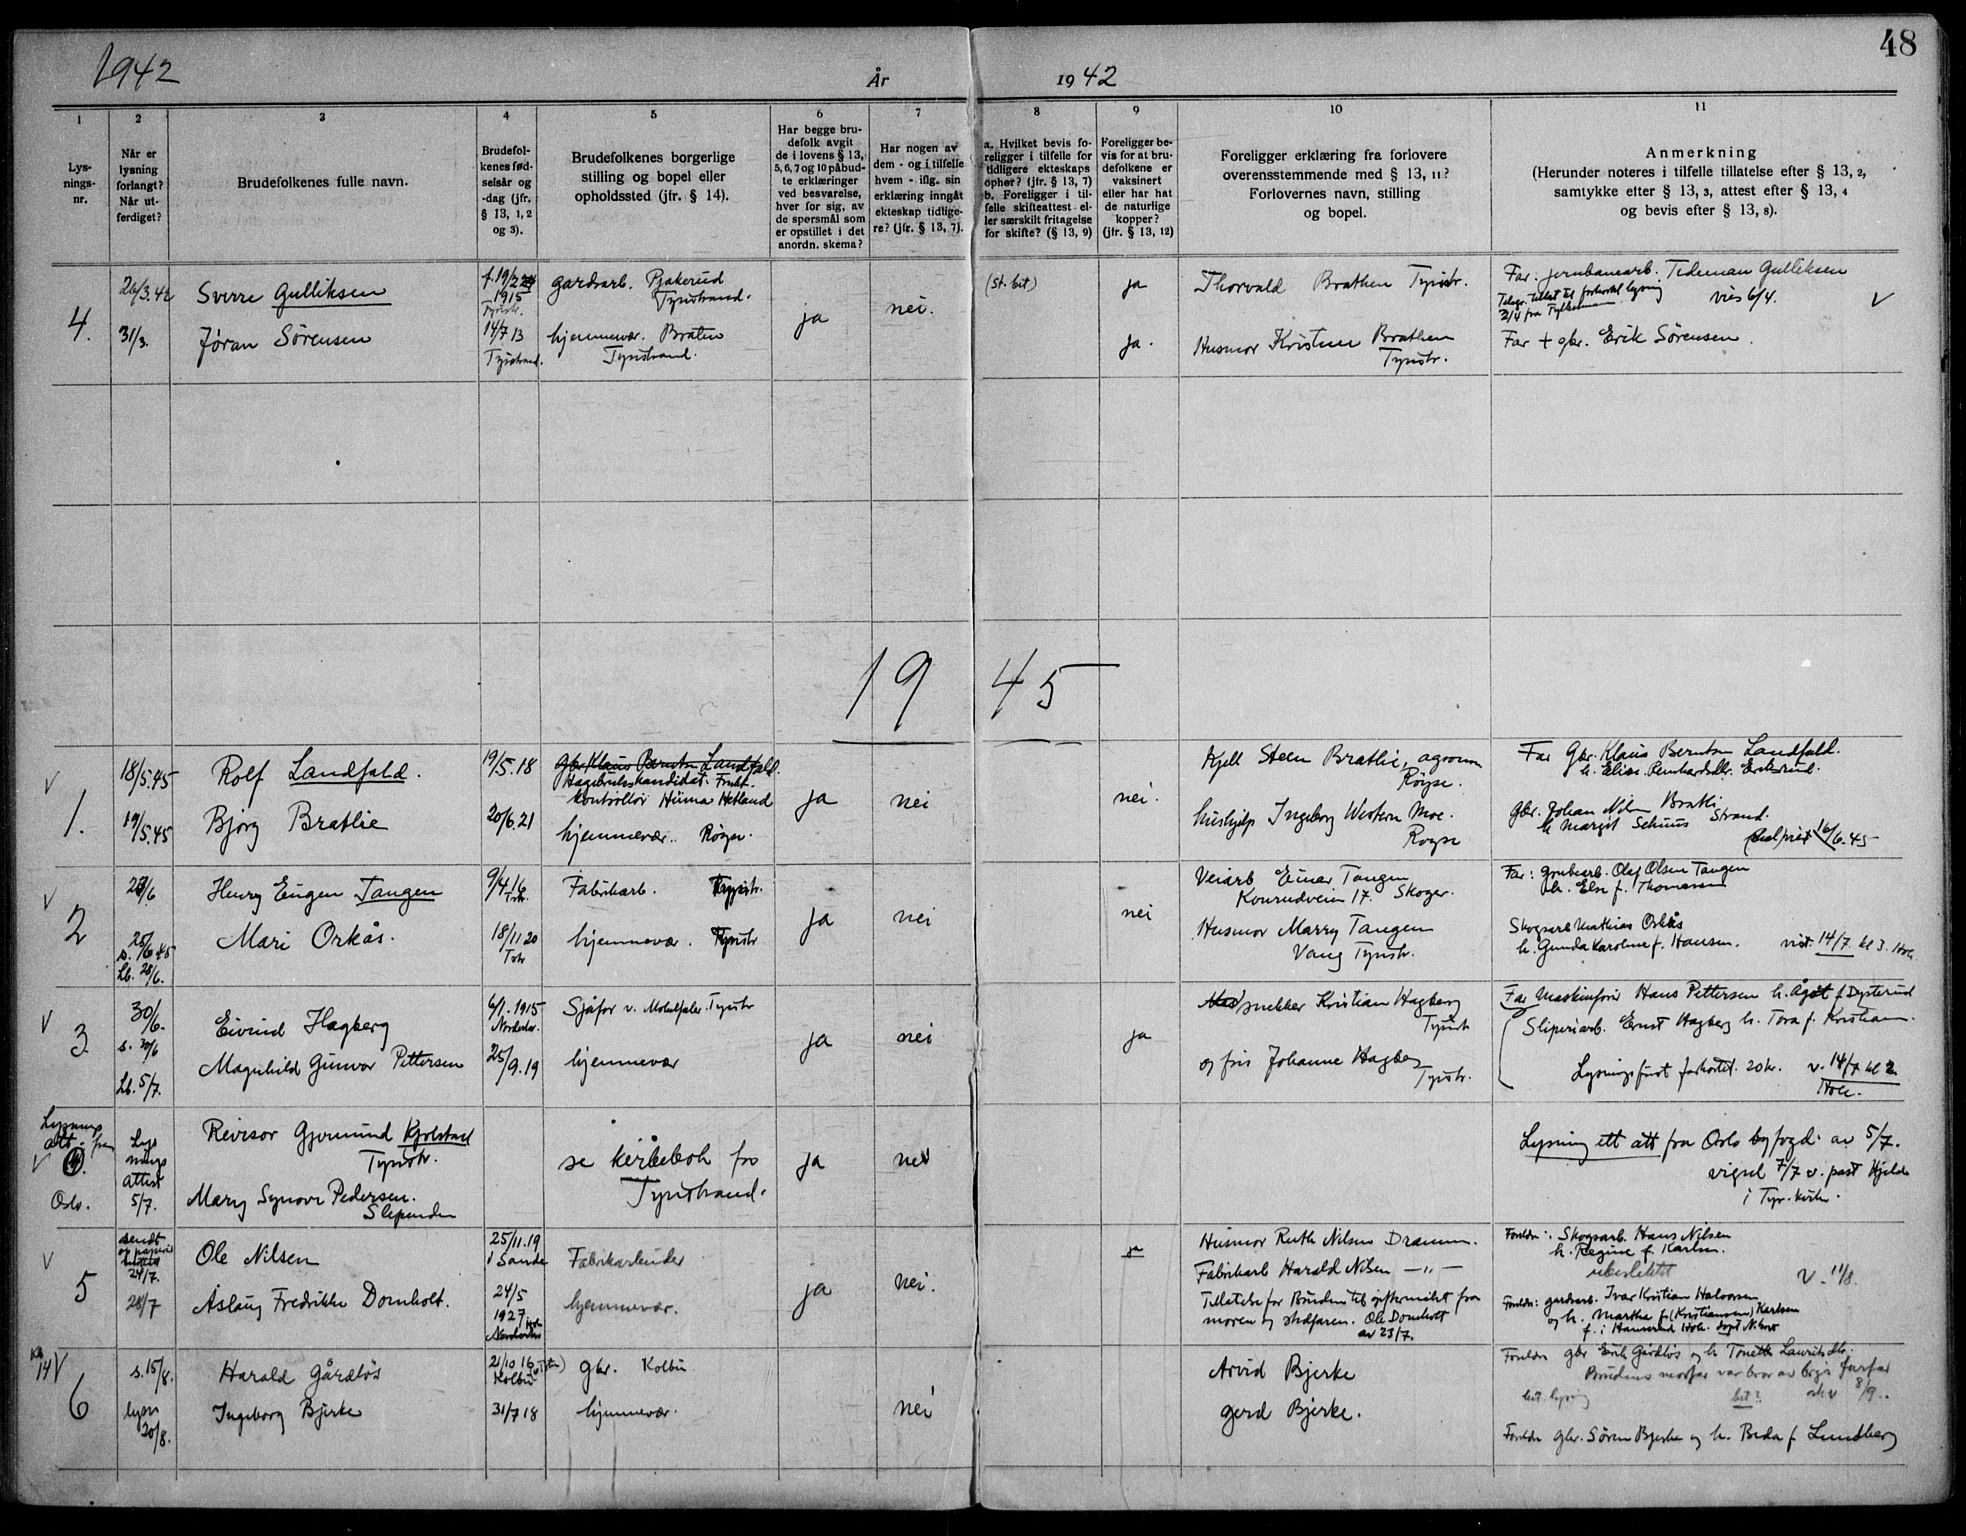 1942
År
1942
48
1
2
3
4
5
6
7
8
9
10
11
Lys-
nings-
nr.
Når er
lysning
forlangt?
Når ut-
ferdiget?
Brudefolkenes fulle navn.
Brudefol-
kenes fød-
selsår og
-dag (jfr.
§ 13, 1, 2
og 3).
Brudefolkenes borgerlige
stilling og bopel eller
opholdssted (jfr. § 14).
Har begge bru-
defolk avgit
de i lovens § 13,
5, 6, 7 og 10 påbud-
te erklæringer
ved besvarelse,
hver for sig, av
de spørsmål som
er opstillet i det
anordn. skema?
Har nogen av
dem - og i tilfelle
hvem - iflg. sin
erklæring inngåt
ekteskap tidlige-
re? (jfr. § 13, 7).
a. Hvilket bevis fo-
religger i tilfelle for
tidligere ekteskaps
ophør? (jfr. § 13, 7)
b. Foreligger i til-
felle skifteattest el-
ler særskilt fritagelse
for skifte? (§ 13, 9)
Foreligger be-
vis for at bru-
defolkene er
vaksinert
eller har hat
de naturlige
kopper?
(jfr. § 13, 12)
Foreligger erklæring fra forlovere
overensstemmende med § 13, 11?
Forlovernes navn, stilling
og bopel.
Anmerkning
(Herunder noteres i tilfelle tillatelse efter § 13, 2,
samtykke efter § 13, 3, attest efter § 13, 4
og bevis efter § 13, 8).
4.
26/3.42
31/3.
Sverre Gulliksen
Jøran Sørensen
1915
14/7 13
Tyristrand.
gardsarb.
Tyristrand.
hjemmevær. Braten
Tyristrand.
ja
nei.
(st. bet)
ja
ja.
Thorvald Brathen Tyristr.
Husmor Kristine Brathen
Tyristr.
Far. jernbanearb. Tideman Gulliksen
vies 6/4. V
Far + gbr. Erik Sørensen.
1945
V
1.
18/5.45
19/5.45
Rolf Landfald.
Bjørg Bratlie
19/5.18
20/6.21
Gbr. Klaus Bernton Landfald.
Hagebrukskandidat. Frukt-
kontrollør Hetland
hjemmevær. Røyse.
ja
nei
nei.
Kjell Steen Bratlie, agronom
Røyse.
hushjelp Ingeborg Western Moe.
Royse
Far Gbr. Klaus Bernton Landfald.
gbr. Johan Nilsen Bratli
h. Margit Strand.
16/6.45
V
2
28/6.
Henry Eugen Tangen
Mari Orkås.
9/4.16
18/11 20
Fabrikarb. Tyristr.
hjemmevær. Tyristr
ja
nei
nei
Veiarb Einar Tangen
Konrudveien 17. Skoger.
Husmor Marry Tangen
Vang Tyristr.
Far: grubearb. Olaf Olsen Tangen
h. Else f. Thomassen
Skogsarb Mathias Orkås
h. Gunda Karoline f. Hansen. 14/7 kl 3. Hole
V
3
30/6.
s. 30/6
Lb. 5/7.
Eivind Hagberg
Magnhild Gunvor Pettersen
6/1.1915
25/9.19
Sjåfør v. Tyristr
hjemmevær
ja
nei
ja
snekker Kristian Hagberg
Tyristr
og fris Johanne Hagberg
Tyristr.
Far Maskinfører Hans Pettersen h. Agot f Dysterud
Sliperiarb. Ernst Hagberg h. Tora f. Kristians.
Lysningsfrist forkortet. 20 kr. v. 14/7 kl 2.
Hole.
Lysnings
att. fra
V 4.
Oslo.
Lys
nings
attest
5/7.
Revisor Gjermund Kjolstad
Tyristr.
Mary Synøve Pedersen.
Slependen
se kirkebok for
Tyristrand.
ja
nei
Lysning ett att fra Oslo byfogd. av 5/7.
vigsel 7/7 v. past Hjelde
i Tyr. kirke.
V
5
sendt
og papirer
24/7.
28/7
Ole Nilsen
Aslaug Fredrikke Domholt.
25/11.19
i Sande
24/5
1927
Fabrikarbeider
hjemmevær.
ja
nei.
ja
Husmor Ruth Nilsen Dramm.
Fabrikarb Harald Nilsen — „ —
Tillatelse for Bruden til giftermålet fra
moren og stedfaren. Ole Domholt
av 23/7.
Foreldre: Skogsarb. Hans Nilsen
h. Regine f. Karlsen.
ubeslektet
V. 11/8.
Foreldre: gardsarb. Ivar Kristian Halvorsen
og h. Martha f. (Kristiansen) Karlsen
14 V
6
s. 15/8.
lysn
20/8.
Harald Gårdløs
Ingeborg Bjerke
21/10 16
Kolbu
31/7 18
gbr. Kolbu
hjemmevær.
nei
Arvid Bjerke
Gerd Bjerke.
Foreldre gbr Erik Gårdløs og h Tonette Lauritsdtr.
Brudens morfar var bror av brgs farfar
bet. lysning
bet?
8/9.
Foreldre gbr. Søren Bjerke og h. Beda f Lundberg